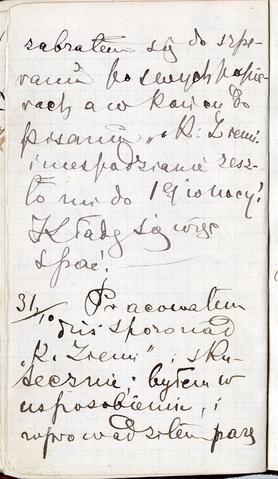 zabrałem się do szpe-
rania po swych papie-
rach a w końcu do
pisania „K. Ziemi"
i niespodzianie zesz-
ło mi do 1ej o nocy!
Kładę się więc
spać!
31/10 Pracowałem
dziś sporo nad
„K. Ziemi" i sku-
tecznie; byłem w
usposobieniu, i
wprowadziłem parę